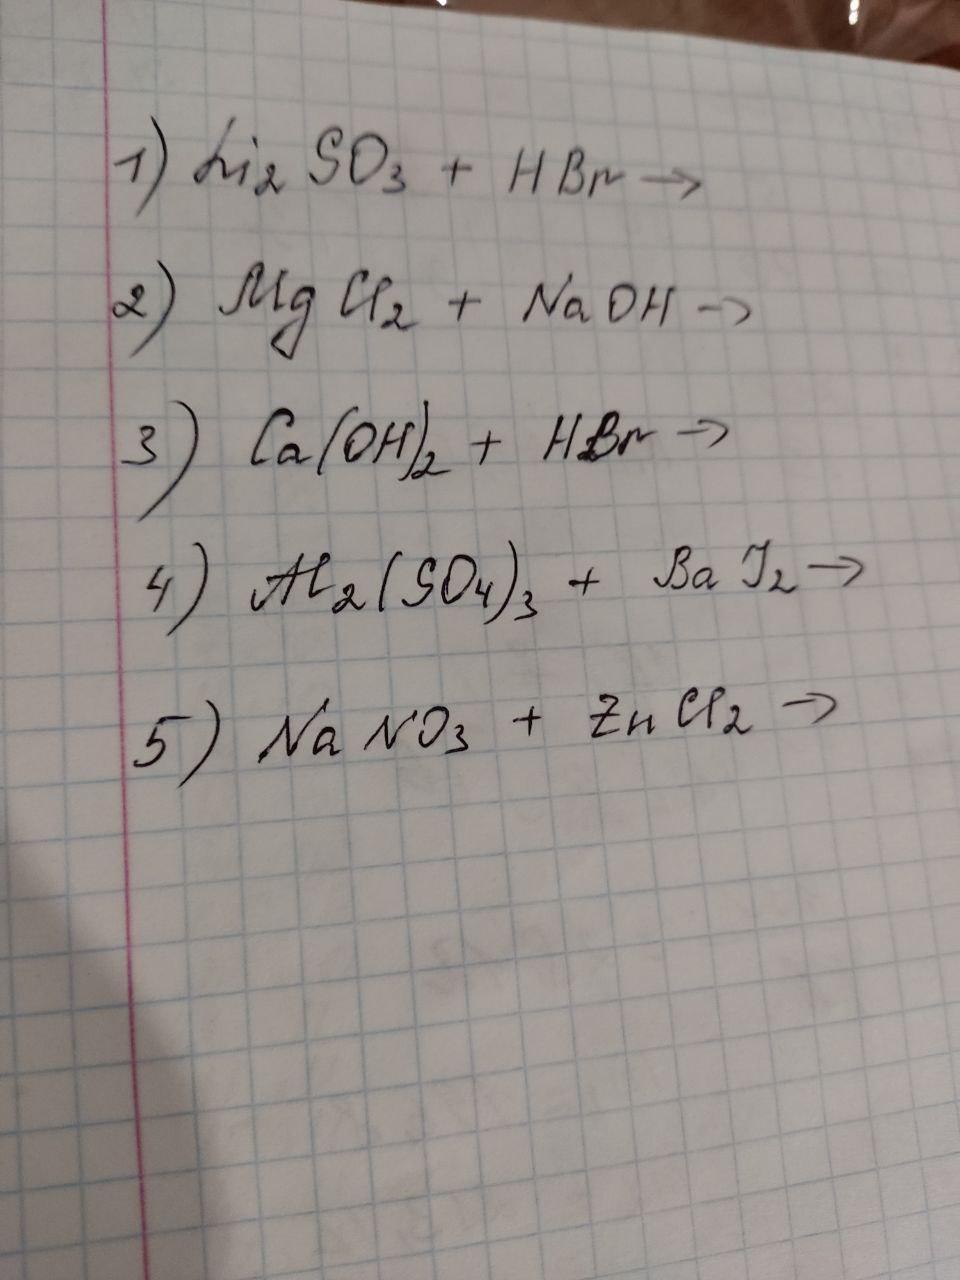 1) Li₂SO₃ + HBr →
2) MgCl₂ + NaOH →
3) Ca(OH)₂ + HBr →
4) Al₂(SO₄)₃ + BaJ₂ →
5) NaNO₃ + ZnCl₂ →